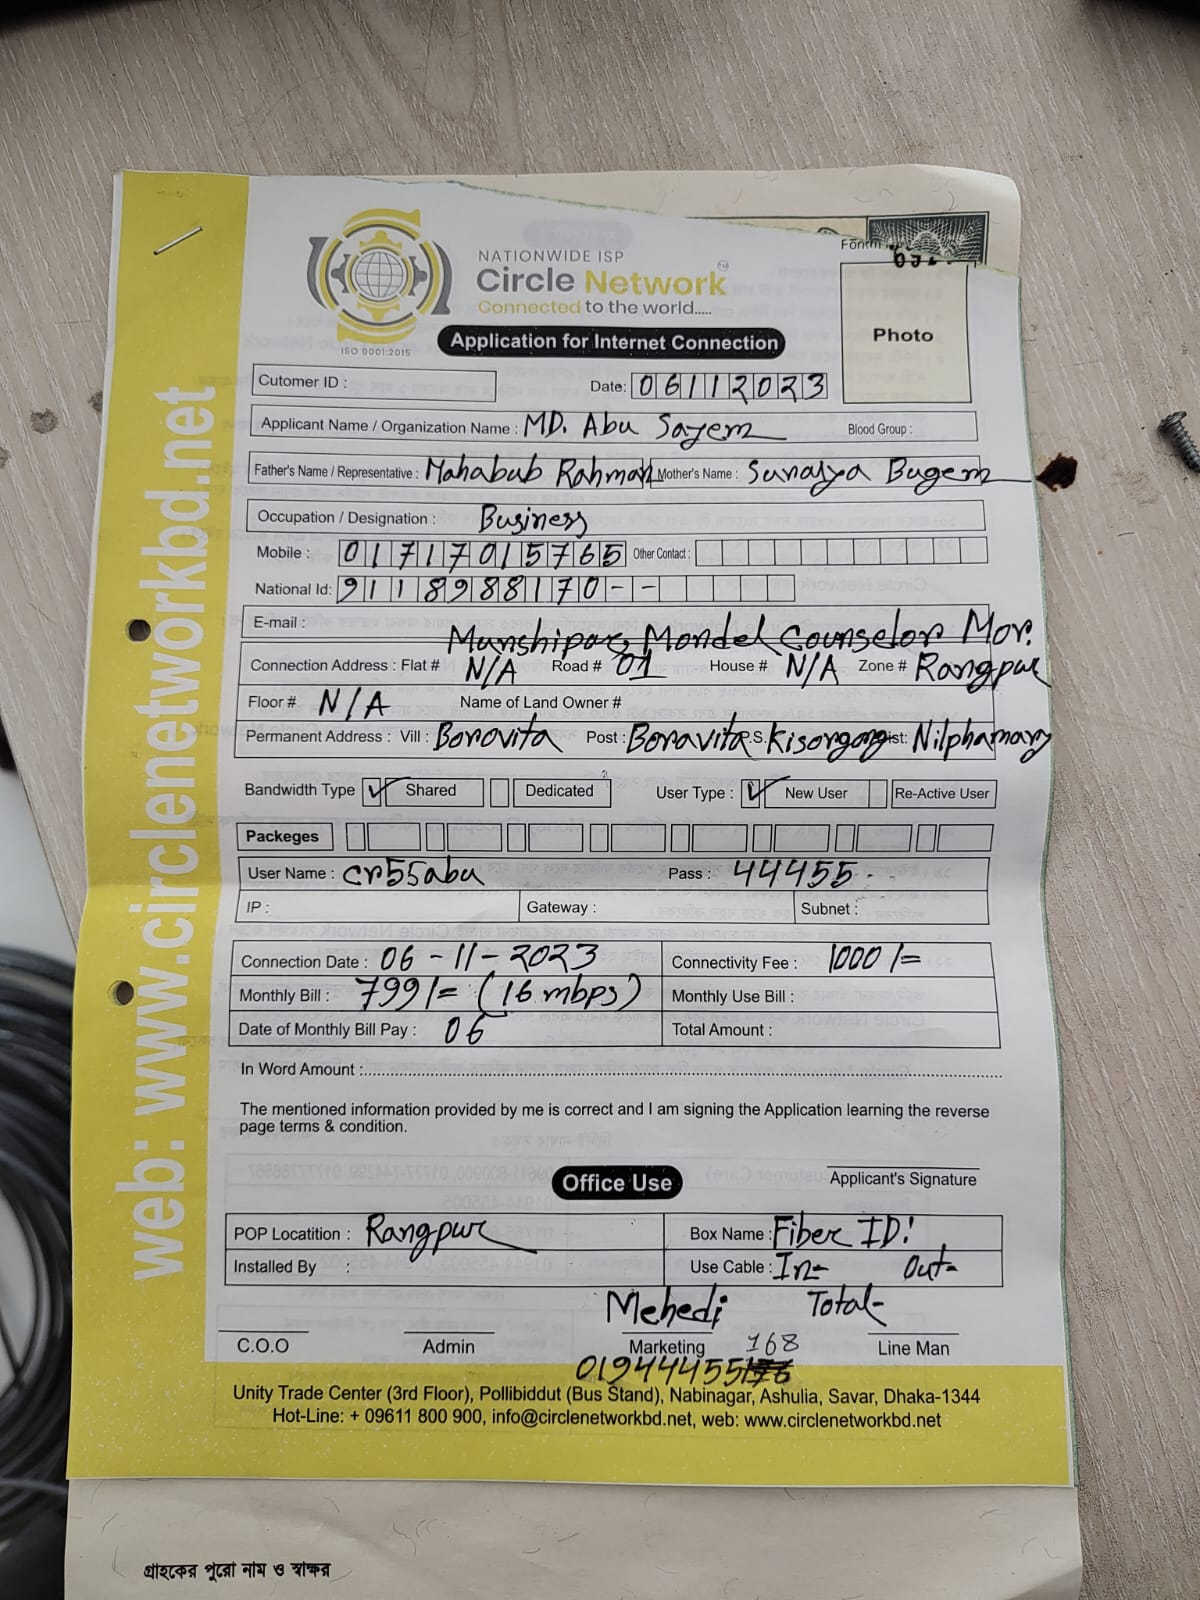 NATIONWIDE ISP
Circle Network™
Connected to the world.....
ISO 9001:2015
Application for Internet Connection
Photo
web: www.circlenetworkbd.net
Cutomer ID :
Date: 06112023
Applicant Name / Organization Name : MD. Abu Sayem Blood Group :
Father's Name / Representative : Mahabub Rahman Mother's Name : Sunaiya Bugem
Occupation / Designation : Business
Mobile : 01717015765 Other Contact :
National Id: 9118988170--
E-mail :
Munshipara, Mondel Counselor Mor.
Connection Address : Flat # N/A Road # 01 House # N/A Zone # Rangpur
Floor # N/A Name of Land Owner #
Permanent Address : Vill : Bonovita Post : Bonavita P.S. Kisorgong Dist: Nilphamary
Bandwidth Type ✓ Shared Dedicated User Type : ✓ New User Re-Active User
Packeges
User Name : cr55abu Pass : 44455
IP : Gateway : Subnet :
Connection Date : 06-11-2023 Connectivity Fee : 1000/=
Monthly Bill : 799/= (16 mbps) Monthly Use Bill :
Date of Monthly Bill Pay : 06 Total Amount :
In Word Amount :
The mentioned information provided by me is correct and I am signing the Application learning the reverse
page terms & condition.
Office Use
Applicant's Signature
POP Locatition : Rangpur Box Name : Fiber ID:
Installed By : Use Cable : In- Out-
Mehedi Total-
C.O.O Admin Marketing Line Man
168
01944455
Unity Trade Center (3rd Floor), Pollibiddut (Bus Stand), Nabinagar, Ashulia, Savar, Dhaka-1344
Hot-Line: + 09611 800 900, info@circlenetworkbd.net, web: www.circlenetworkbd.net
গ্রাহকের পুরো নাম ও স্বাক্ষর